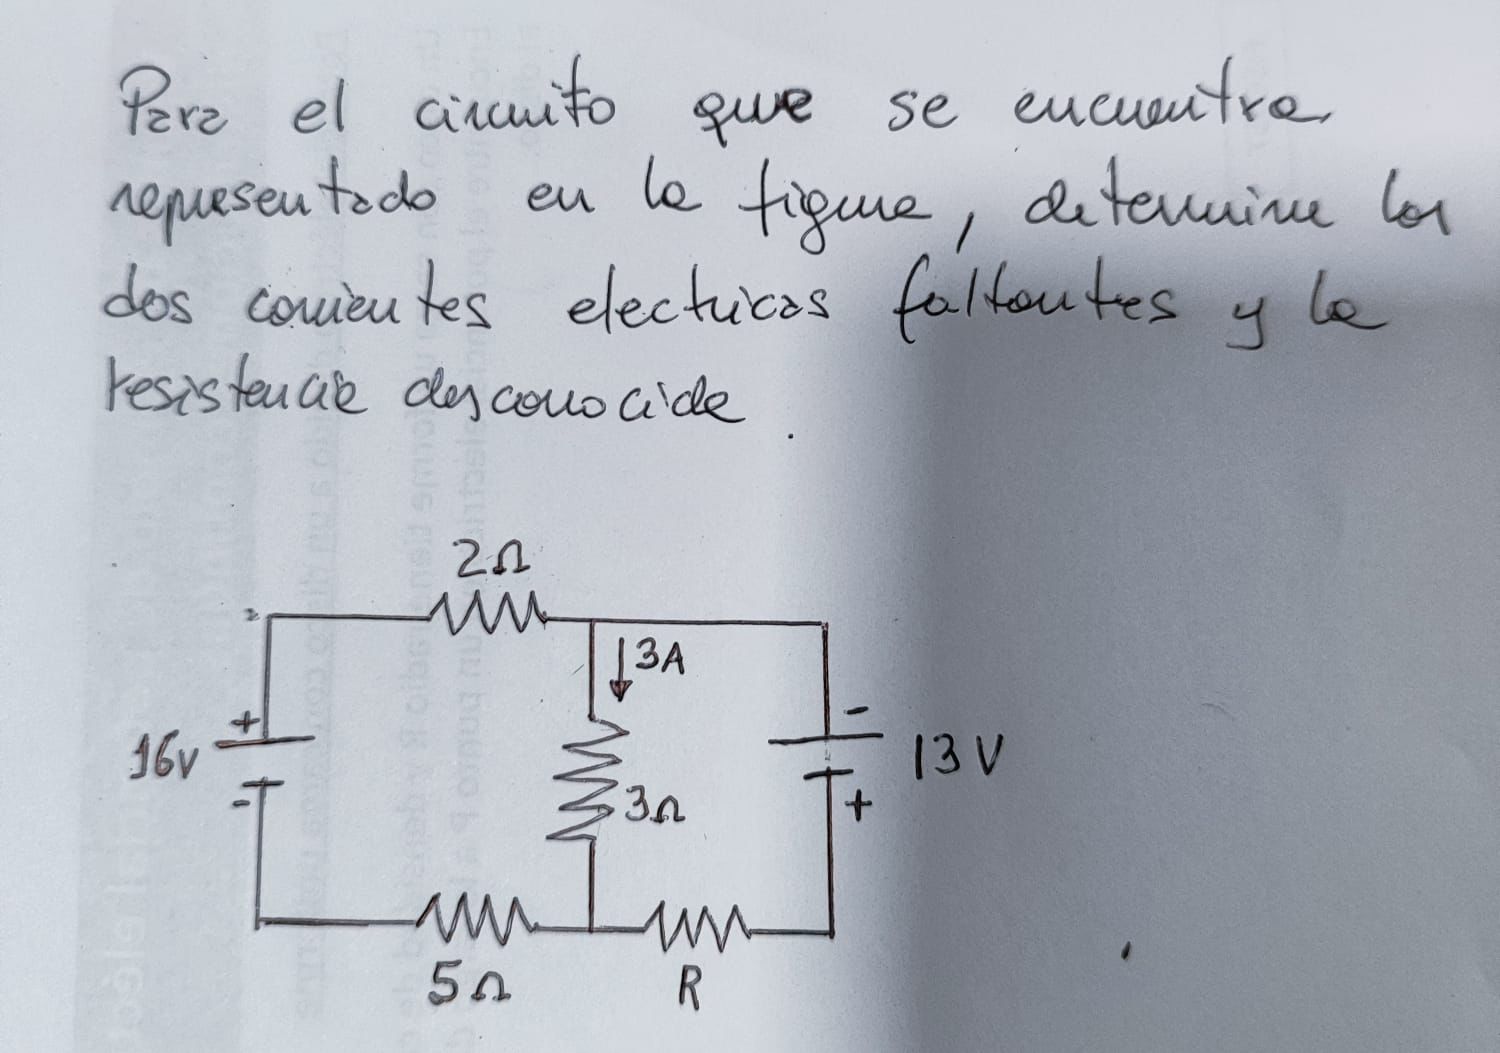 Para el circuito que se encuentra
representado en la figura, determine las
dos corrientes electricas faltantes y la
resistencia desconocida.
2Ω
3A
+
16v
-
3Ω
-
13V
+
5Ω
R